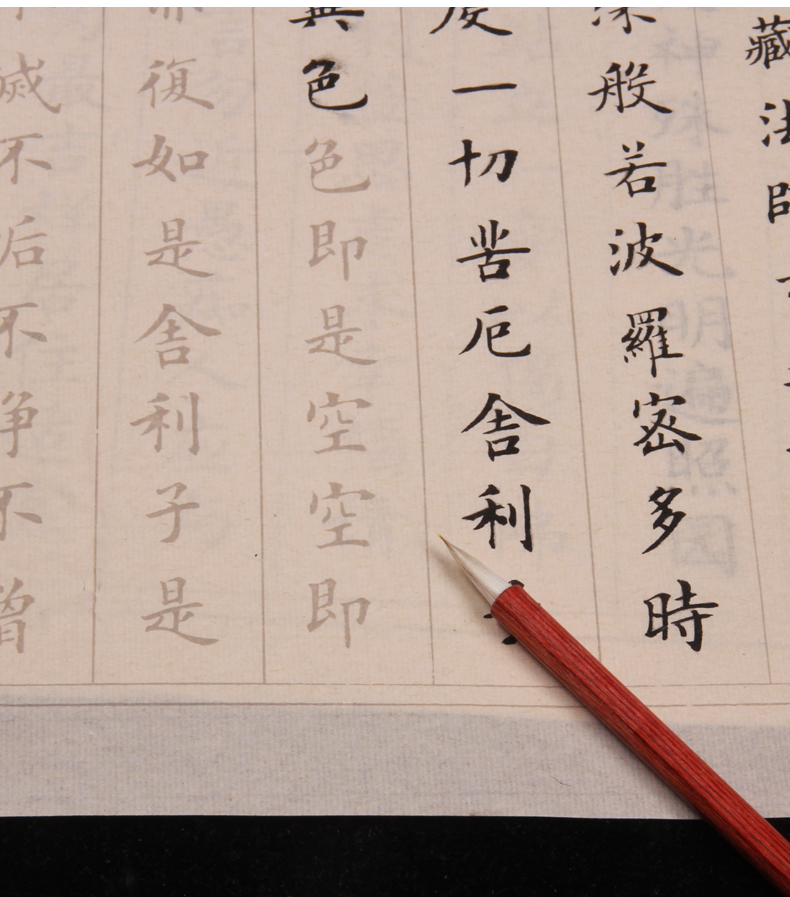 藏法師
深般若波羅密多時
度一切苦厄舍利
異色色即是空空即
亦復如是舍利子是
滅不垢不淨不增